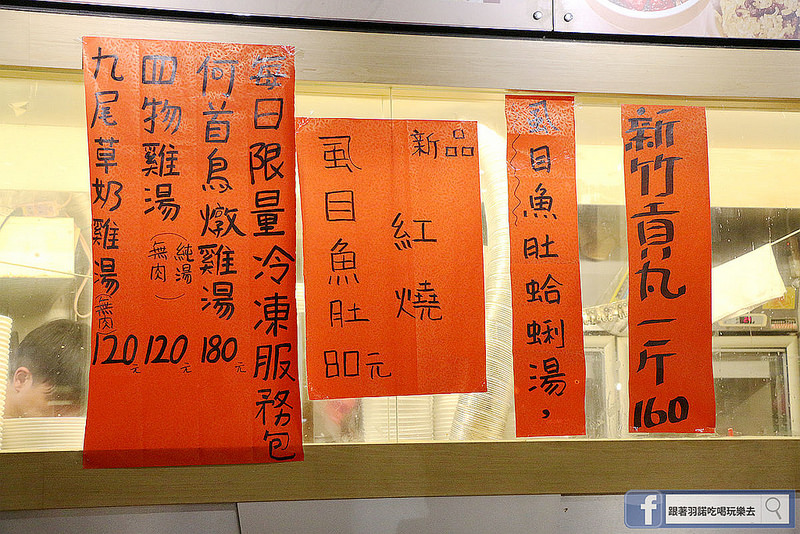 每日限量冷凍服務包
何首烏燉雞湯 180元
四物雞湯(純湯無肉) 120元
九尾草奶雞湯(無肉) 120元
新品
紅燒
虱目魚肚
80元
虱目魚肚蛤蜊湯,
新竹貢丸一斤160
跟著羽諾吃喝玩樂去